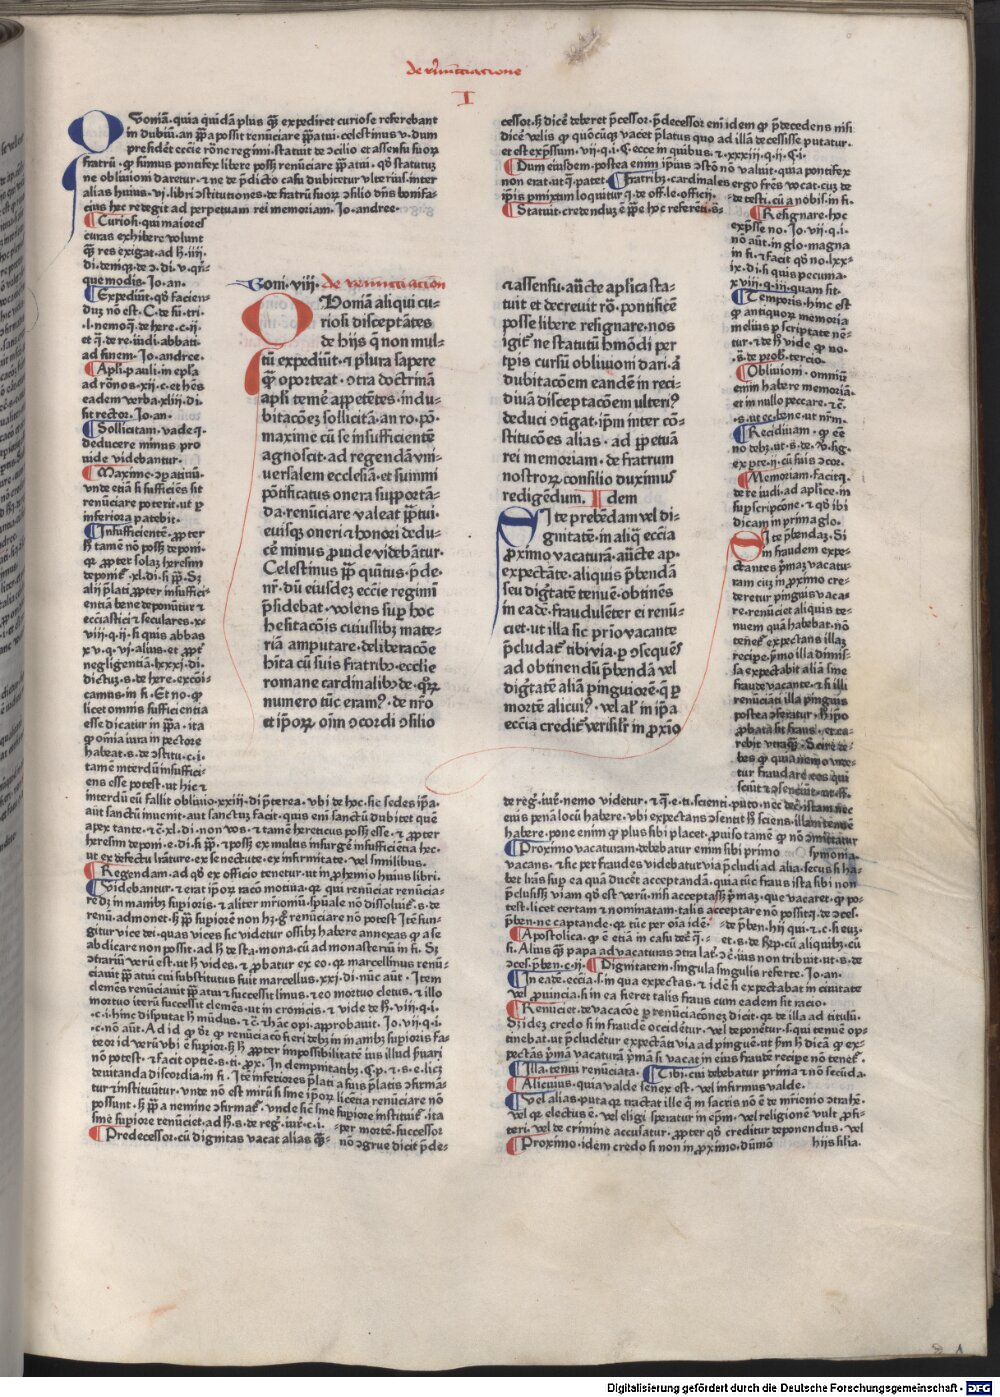 de renunciacione
I
Quoniā. quia quidā plus quā expediret curiose referebant
in dubiū. an pp̄a possit renūciare pp̄atui. celestinus v. dum
presidēt eccīe rōne regimī. statuit de ɔcilio et assensu suoꝝ
fratrū. ꝙ sūmus pontifex libere possꝫ renūciare pp̄atui. qđ statutū
ne obliuioni daretur. & ne de p̄dicto casu dubitetur vlterius. inter
alias huius. vi. libri ɔstitutiones. de fratrū suoꝝ ɔsilio dn̄s bonifa-
cius hec redegit ad perpetuam rei memoriam. Jo. andree.
Curiosi. qui maiores
curas exhibere volunt
quā res exigat. ad h. iiij.
di. deniqꝫ. de ɔ. di. v. qn̄-
quemodis. Jo. an.
Expediūt. qđ facien-
duꝫ nō est. C. de sū. tri.
l. nemo. de here. c. ij.
et q̄. de re. iudi. abbati.
ad finem. Jo. andree.
Apl̄i. pauli. in epl̄a
ad rōnos. xij. c. et hēs
eadem verba. xliij. di.
sit rector. Jo. an.
Sollicitam. vade q.
deducere minus pro
uide videbantur.
Maxime. ɔpatiuū.
vnde etiā si sufficiēs sit
renūciare poterit. ut p
inferiora patebit.
Insufficientē. ꝓpter
hꝫ tamē nō possꝫ deponi.
qꝛ ꝓpter solaꝫ heresim
deponit᷑. xl. di. si pp̄. Sꝫ
alij p̄lati ꝓpter insuffici-
entiā bene deponūtur &
ecc̄iastici & seculares. x-
viij. q. ij. si quis abbas
xv. q. vj. alius. et ꝓpt᷑
negligentiā. lxxxi. di.
dictuꝫ. s. de here. excōi-
camus. in fi. Et no. ꝙ
licet omnis sufficientia
esse dicatur in pp̄a. ita
ꝙ om̄ia iura in pectore
habeat. s. de ɔstitu. c. i.
tamē interdū insuffici-
ens esse potest. ut hic &
interdū eū fallit obliuio. xxiij. di. p̄terea. vbi de hoc. sic sedes ip̄a.
aut sanctū inuenit. aut sanctuꝫ facit. quis eni᷑ sanctū dubitet quē
apex tante. & c̄. xl. di. non vos. & tamē hereticus possꝫ esse. & ꝓpter
heresim deponi. e. di. si pp̄. & possꝫ ex multis insurge᷑ insufficietia hec.
ut ex defectu lr̄ature. ex senectute. ex infirmitate. vel similibus.
Regendam. ad qđ ex officio tenetur. ut in ꝓhemio huius libri.
Videbantur. & erat ip̄oꝝ racō motiua. qꝛ qui renūciat renūcia-
re dꝫ in manibꝫ supioris. & aliter mr̄ioniū. sp̄uale nō dissoluit᷑. s. de
renū. admonet. hꝫ pp̄ supiorē non hꝫ. gͦ renūciare nō potest Itē fun-
gitur vice dei. quas vices sic videtur ossibꝫ habere annexas ꝙ a se
abdicare non possit. ad hꝫ de sta. mona. cū ad monasteriū in fi. Sꝫ
ɔtrariū verū est. ut hꝫ vides. & ꝓbatur ex eo. qꝛ marcellinus renū-
ciauit pp̄atui cui substitutus fuit marcellus. xxj. di. nūc aūt. Item
clemēs renūciauit pp̄atui & successit linus. & eo mortuo cletus. & illo
mortuo iterū successit clemēs. ut in cronicis. & vide de hꝫ. viij. q. i.
.c. i. hinc disputat hꝫ mūdus. & c̄. & hāc opi. approbauit. Jo. vij. q. i.
.c. nō aūt. Ad id ꝙ dr̄ ꝙ renūciacō fieri debꝫ in manibꝫ supioris fa-
teor id verū vbi ē supior. hꝫ hꝫ ꝓpter impossibilitatē ius illud p̄uari
nō potest. & facit optie. s. ti. prox. In dempnitatibꝫ. C. p. & s. e. licꝫ
deuitanda discordia. in fi. Itē inferiores p̄lati a suis p̄latis ɔfirmā-
tur & instituūtur. vnde nō est mirū si sine ip̄oꝝ licētia renūciare nō
possunt. hꝫ pp̄a a nemine ɔfirmat᷑. vnde sic sine supiore instituit᷑. ita
sine supiore renūciet. ad hꝫ. s. de reg. iur̄. c. i. per mortē. successor
Predecessor. cū dignitas vacat alias quā nō ɔgrue dicit p̄de-
cessor. hꝫ dicē deberet p̄cessor. p̄decessor eni᷑ idem ꝙ p̄decedens nisi
dicē velis ꝙ quōcūqꝫ vacet p̄latus quo ad illā decessisse. putatur.
et est exp̄ssum. vij. q. i. C. ecce in quibus. & xxxiij. q. ij. C. i.
Dum eiusdem. postea enim ip̄ius ɔstō nō valuit. quia pontifex
non erat. ut q̄. patet. Fratribꝫ. cardinales ergo fr̄es vocat. cuꝫ de
ip̄is pmixtim loquitur q̄. de off. le. officii. de testi. cū a nobis. in fi.
Statuit. credenduꝫ ē pp̄e hoc referēti. s.
Soni. viij. de renunciacōn
Quoniā aliqui cu-
riosi disceptātes
de hijs q̄ non mul-
tū expediūt. & plura sapere
quā oporteat. ɔtra doctrinā
apl̄i temē appetētes. indu-
bitacōeꝫ sollicitā. an ro. pō.
maxime cū se insufficientē
agnoscit. ad regendā vni-
uersalem ecclesiā. et summi
pōtificatus onera supportā-
da. renūciare valeat pp̄tui.
eiusqꝫ oneri & honori dedu-
cē minus prouide videbātur.
Celestinus pp̄ quītus. p̄de-
nr̄. dū eiusdeꝫ eccīe regimī
p̄sidebat. volens sup hoc
hesitacōis cuiuslibꝫ mate-
riā amputare. deliberacōe
hīta cū suis fratribꝫ. ecclie
romane cardinalibꝫ. de. qꝛꝫ
numero tūc eram᷒. de nr̄o
et ip̄oꝝ oīm ɔcordi ɔsilio
& assensu. auc̄te aplica sta-
tuit et decreuit rō. pontificē
posse libere resignare. nos
igit᷑ ne statutū hm̄ōdi per
tp̄is cursū obliuioni dari. ā
dubitacōem eandē in reci-
diuā disceptacōem vlteri᷒
deduci ɔtigat. ip̄m inter cō-
stitucōes alias. ad ppetuā
rei memoriam. de fratrum
nostroꝝ consilio duximus
redigēdum. Idem
Si te prebēdam vel di-
gnitatē. in aliq̄ eccīa
ꝓximo vacaturā. auc̄te ap.
expectāte. aliquis p̄bendā
seu digtatē tenuē. obtinēs
in eadē. fraudulēter ei renū-
ciet. ut illa sic prio vacante
p̄cludat᷑ tibi via. p ɔsequēs
ad obtinendū p̄bendā vel
digtatē aliā pinguiorē. q̄ p
mortē alicui᷒. vel al᷑ in ip̄a
eccīa credit᷑ verisil᷑r in prxio
Resignare. hoc
exp̄sse no. Jo. vij. q. i.
nō aūt. in glo. magna
in fi. & facit qđ no. lxx-
ix. di. si quis pecunia.
x viij. q. iij. quam sit.
Temporis. hinc est
ꝙ antiquoꝝ memoria
melius p scriptate nē-
tur. & de hꝫ vide ꝙ no.
.s. de prob. tercio.
Obliuioni. omniū
enim habere memoriā.
et in nullo peccare. & c̄.
Recidiuam. ꝙ eē
nō debꝫ. ut. s. de. vͦ. sig.
ex pte. ij. cū suis ɔcor.
Memoriam. facit q̄.
de re iudi. ad aplice. in
supscripcōne. & qđ ibi
dicam in prima glo.
Si te p̄bendaꝫ. Si
in fraudem expe-
ctantes p̄maꝫ vacatu-
ram cuiꝫ in ꝓximo cre-
deretur pinguis vaca-
re. renūciet aliquis te-
nuem quā habebat. nō
tenet᷑ expectans illaꝫ
recipe᷑. ymo illa dimis-
sa expectabit aliā sine
fraude vacante. & si illi
renūciāti illa pinguis
postea ɔferatur. hꝫ ip̄o
ꝓbata sit fraus. et ca-
rebit vtraqꝫ. Scire de-
bes ꝙ quia nemo vide-
tur fraudare eos qui
sciūt & ɔsenciūt. ut ff.
de reg. iur̄. nemo videtur. & q̄. e. ti. scienti. puto. nec dec. istam nec
eius penā locū habere. vbi expectans ɔsentit hꝫ sciens. illam tenuē
habere. pone enim ꝙ plus sibi placet. ꝓuiso tamē ꝙ nō ɔmittatur
Proximo vacaturam. debebatur enim sibi primo symonia.
vacans. & sic per fraudes videbatur via p̄cludi ad alia. secus si ha-
bet hās sup ea quā ducēt acceptandā. quia tūc fraus ista sibi non
p̄clusisꝫ viam qđ est verū. nisi acceptassꝫ p̄maꝫ. que vacaret. ꝙ po-
test. licet certam & nominatam. talis acceptare nō possit. de ɔces.
p̄ben. ne captande. qꝛ tūc per oīa idē. de p̄ben. hij qui. & c. si euꝫ.
Apostolica. ꝙ ē etiā in casu dec q̄. et. s. de Rꝓ. cū aliquibꝫ. cū
fi. Alius quā papa ad vacaturas ɔtra lat̄. ɔē. ius non tribuit. ut. s. de
ɔces. p̄ben. c. ij. Dignitatem. singula singulis referte. Jo. an.
In eadē. eccīa. s. in qua expectas. & idē si expectabat in ciuitate
vel prouincia. si in ea fieret talis fraus cum eadem sit racio.
Renūciet. de vacacōe p renūciacōneꝫ dicit. qꝛ de illa ad titulū.
Sꝫ idez credo si in fraudē occidētur. vel deponētur. s. qui tenuē op-
tinebat. ut p̄cludētur expectāti via ad pinguē. ut sm̄ hꝫ dicā ꝙ ex-
pectās p̄mā vacaturā p̄mā si vacat in eius fraudē recipe nō tenet᷑.
Illa. tenui renūciata. Tibi. cui debebatur prima & nō secūda.
Alicuius. quia valde senex est. vel infirmus valde.
Vel alias. puta qꝛ tractat ille q̄ in sacris nō ē de mr̄ionio ɔtrahē.
vel qꝛ electus ē. vel eligi speratur in ep̄m. vel religionē vult ꝓfi-
teri. vel de crimine accusatur. ꝓpter qđ creditur deponendus. vel
Proximo. idem credo si non in proximo. dūmō hijs silia.
Digitalisierung gefördert durch die Deutsche Forschungsgemeinschaft - DFG